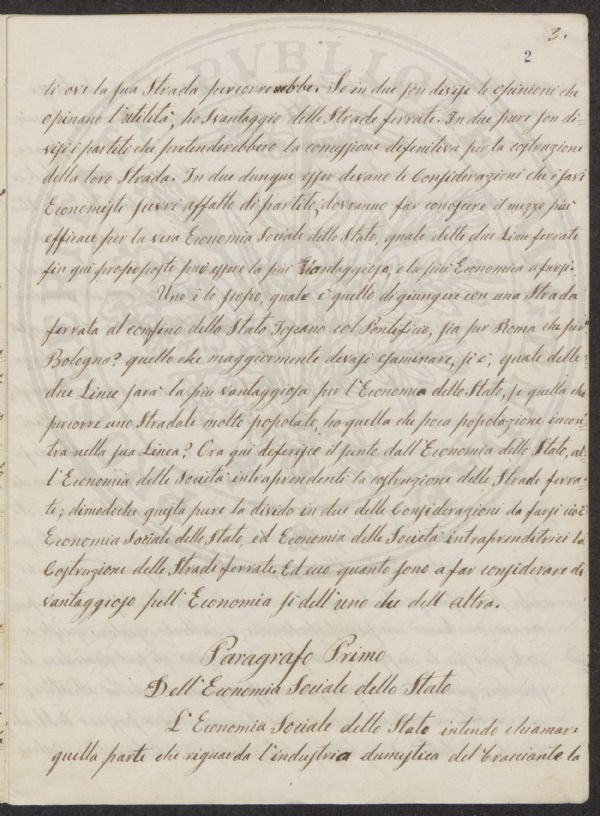 3.
2
ti ove la sua Strada percorrerebbe. Se in due son divise le opinioni che
opinano l'utilità, ho svantaggio delle Strade ferrate. In due pure son di-
visi i partiti che pretenderebbero la concessione definitiva per la costruzione
della loro Strada. In due dunque esser devano le Considerazioni che i savi
Economisti scevri affatto di partito, dovranno far conoscere il mezzo più
efficace per la vera Economia Sociale dello Stato, quale delle due Linee ferrate
fin qui proposte può essere la più vantaggiosa, e la più Economica a farsi.
Uno è lo scopo, quale è quello di giungere con una Strada
ferrata al confino dello Stato Toscano col Pontificio, sia per Roma che per
Bologna? quello che maggiormente devasi esaminare, si è, quale delle
due Linee sarà la più vantaggiosa per l'Economia dello Stato, se quella che
percorre uno Stradale molto popolato, ho quella che poca popolazione incon
tra nella sua Linea? Ora qui deferisce il punto dall'Economia dello Stato, al-
l'Economia delle Società intraprendenti la costruzione delle Strade ferra-
te; dimodoche questa pure la divido in due delle Considerazioni da farsi cioè
Economia Sociale dello Stato, ed Economia delle Società intraprenditrici la
Costruzione delle Strade ferrate. Ed ecco quanto sono a far considerare di
vantaggioso pell'Economia si dell'uno che dell altra.
Paragrafo Primo
Dell'Economia Sociale dello Stato
L'Economia Sociale dello Stato intendo chiamare
quella parte che riguarda l'industria dumistica del bracciante la